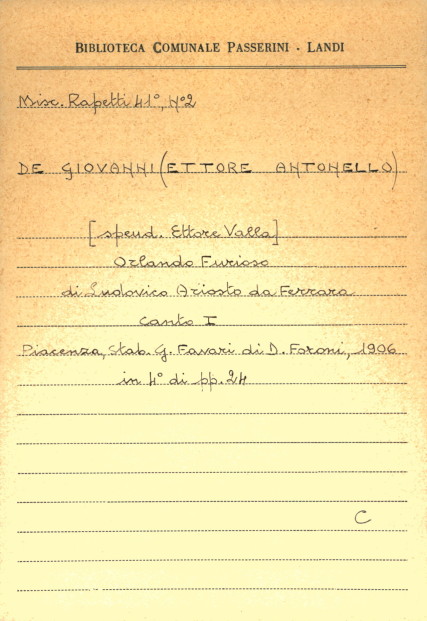 BIBLIOTECA COMUNALE PASSERINI - LANDI
Misc. Rapetti 41°, N°2
DE GIOVANNI (ETTORE ANTONELLO)
[pseud. Ettore Valla]
Orlando Furioso
di Ludovico Ariosto da Ferrara
Canto I
Piacenza, Stab. G. Favari di D. Foroni, 1906
in 4° di pp. 24
C